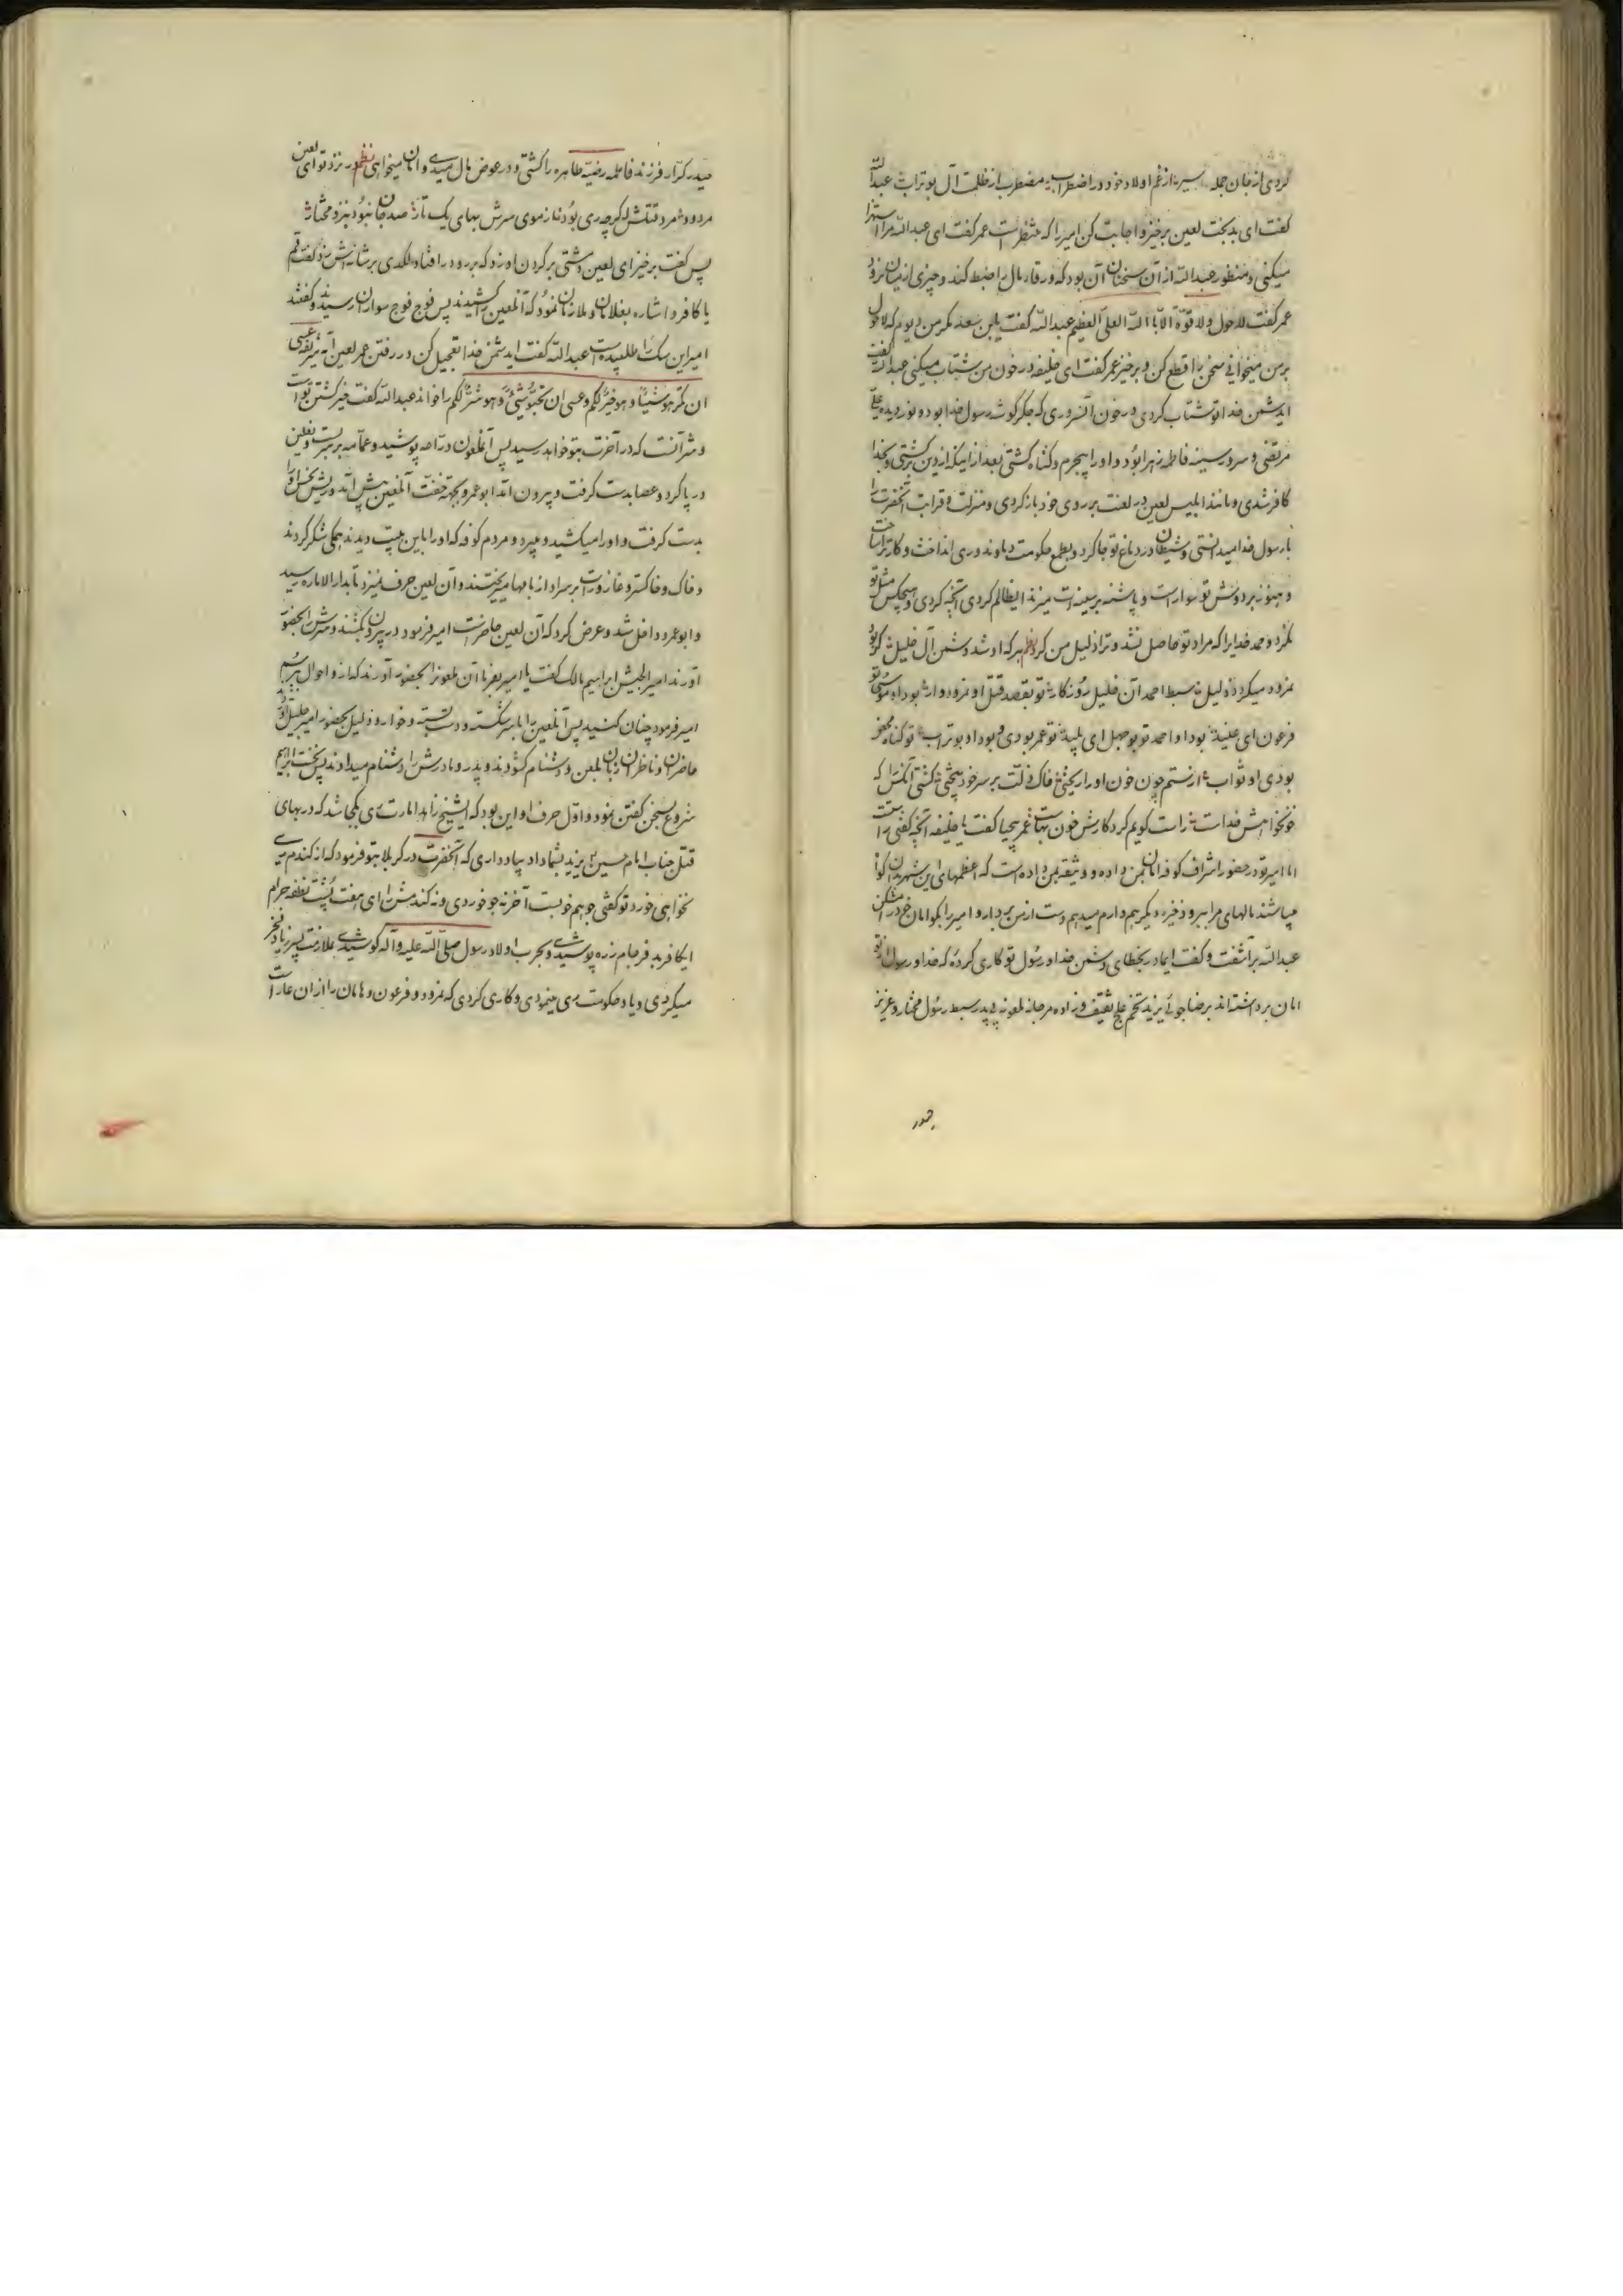 کردی از جان جمله سیر نه از غم اولاد خود در اضطراب نه مضطرب از ظلمت آل بوتراب عبدالله
گفت ای بدبخت لعین برخیز و اجابت کن امیر را که منتظرست عمر گفت ای عبدالله مرا استهزا
میکنی و منظور عبدالله از آن سخنان آن بود که ورقا مال را ضبط کند و چیزی از میان نرود
عمر گفت لاحول ولا قوة الا بالله العلی العظیم عبدالله گفت یابن سعد مگر من دیوم که لاحول
بر من میخوانی سخن را قطع کن و برخیز عمر گفت ای خلیفه در خون من شتاب میکنی عبدالله گفت
ایدشمن خدا تو شتاب کردی در خون آنسروری که جگر گوشه رسول خدا بود و نور دیده علی
مرتضی و سرور سینه فاطمه زهرا بود و او را بیجرم و گناه کشتی بعد از اینکه از دین برگشتی و بخدا
کافر شدی و مانند ابلیس لعین در لعنت بر روی خود باز کردی و منزلت و قرابت آنحضرت را
با رسول خدا میدانستی و شیطان در دماغ تو جا کرد و بطمع حکومت دماوند و ری انداخت و کار ترا ساخت
و هنوز بر دوش تو سوارست و پاشنه بر سینه ات میزند ایظالم کردی آنچه کردی و هیچکس مثل تو
نکرد و حمد خدایرا که مراد تو حاصل نشد و ترا ذلیل من کرد نظم هر که او شد دشمن آل خلیل
نمرود میگردد ذلیل سبط احمد آن خلیل روزگار تو بقصد قتل او نمرودوار بود او موسی تو
فرعون ای عنید بود او احمد تو بوجهل ای پلید تو عمر بودی و بود او بوتراب تو گناه محض
بودی او ثواب از ستم چون خون او را ریختی خاک ذلت بر سر خود بیختی کشتی آنکس را که
خونخواهش خداست راست گویم کرد کارش خون بهاست عمر بیحیا گفت یا خلیفه آنچه گفتی راست
اما امیر تو در حضور اشراف کوفه امان بمن داده و وثیقه بمن داده است که اعظمهای این شهر بدان گواه
میباشند مالهای مرا ببر و ذخیره دیگر هم دارم میدهم دست از من بردار و امیر را بگو امان خود مشکن
عبدالله برآشفت و گفت ای دشمن خدا و رسول تو کاری کرده که خدا و رسول از تو
امان برداشته اند برضا جوئی یزید و زاده مرجانه ملعونه بی پدر سبط رسول مختار و عزیز
حیدر
حیدر کرار فرزند فاطمه رضیه طاهره را کشتی و در عوض مال میدهی و امان میخواهی نظم در نزد تو ای لعین
مردود شمر قتلش اگرچه ری بود نزد مختار
پس گفت برخیز ای لعین و مشتی بر گردن او زد که بر رو در افتاد و لگدی بر شانه اش زد و گفت قم
یا کافر و اشاره بغلامان و ملازمان نمود که آنلعین را کشیدند پس فوج فوج سواران رسیدند و گفتند
امیر این سگ را طلبیده است عبدالله گفت ایدشمن خدا تعجیل کن در رفتن عمر لعین آیه شریفه عسی
ان تکرهوا شیئا و هو خیر لکم و عسی ان تحبوا شیئا و هو شر لکم را خواند عبدالله گفت خیر کشتن تو است
و شر آنست که در آخرت بتو خواهد رسید پس آنملعون دراعه پوشید و عمامه بر سر بست و نعلین
در پا کرد و عصا بدست گرفت و بیرون آمد ابوعمرو بجهة خفت آنلعین پیش آمد و ریش نحس او را
بدست گرفت و او را میکشید و میبرد و مردم کوفه که او را باین هیئت دیدند همگی شکر کردند
و خاک و خاکستر و غازورات بر سر او از بامها میریختند و آن لعین حرف نمیزد تا بدارالاماره رسید
و ابوعمرو داخل شد و عرض کرد که آن لعین حاضر است امیر فرمود در بیرون بکشند و سرش را بحضور
آورند امیر الجیش ابراهیم مالک گفت یا امیر بفرما آن ملعون را بحضور آورند که از و احوال بپرسیم
امیر فرمود چنان کنید پس آنلعین را با سر شکسته و دست بسته و خوار و ذلیل بحضور امیر جلیل آوردند
حاضران و ناظران زبان بلعن و دشنام گشودند و پدر و مادرش را دشنام میدادند پس نخست ابراهیم
شروع بسخن گفتن نمود و اول حرف او این بود که ایشیخ زاهد امارت ری بکجا شد که در بهای
قتل جناب امام حسین یزید بشما داد بیاد داری که آنحضرت در کربلا بتو فرمود که از گندم ری
نخواهی خورد تو گفتی جو هم خوبست آخر نه جو خوردی و نه گندمش را ای هفت پشت نطفه حرام
ایکافر بد فرجام زره پوشیدی و بحرب اولاد رسول صلی الله علیه و آله کوشیدی بملازمت پسر زیاد فخر
میکردی و یاد حکومت ری مینمودی و کاری کردی که نمرود و فرعون و هامان را از ان عار است